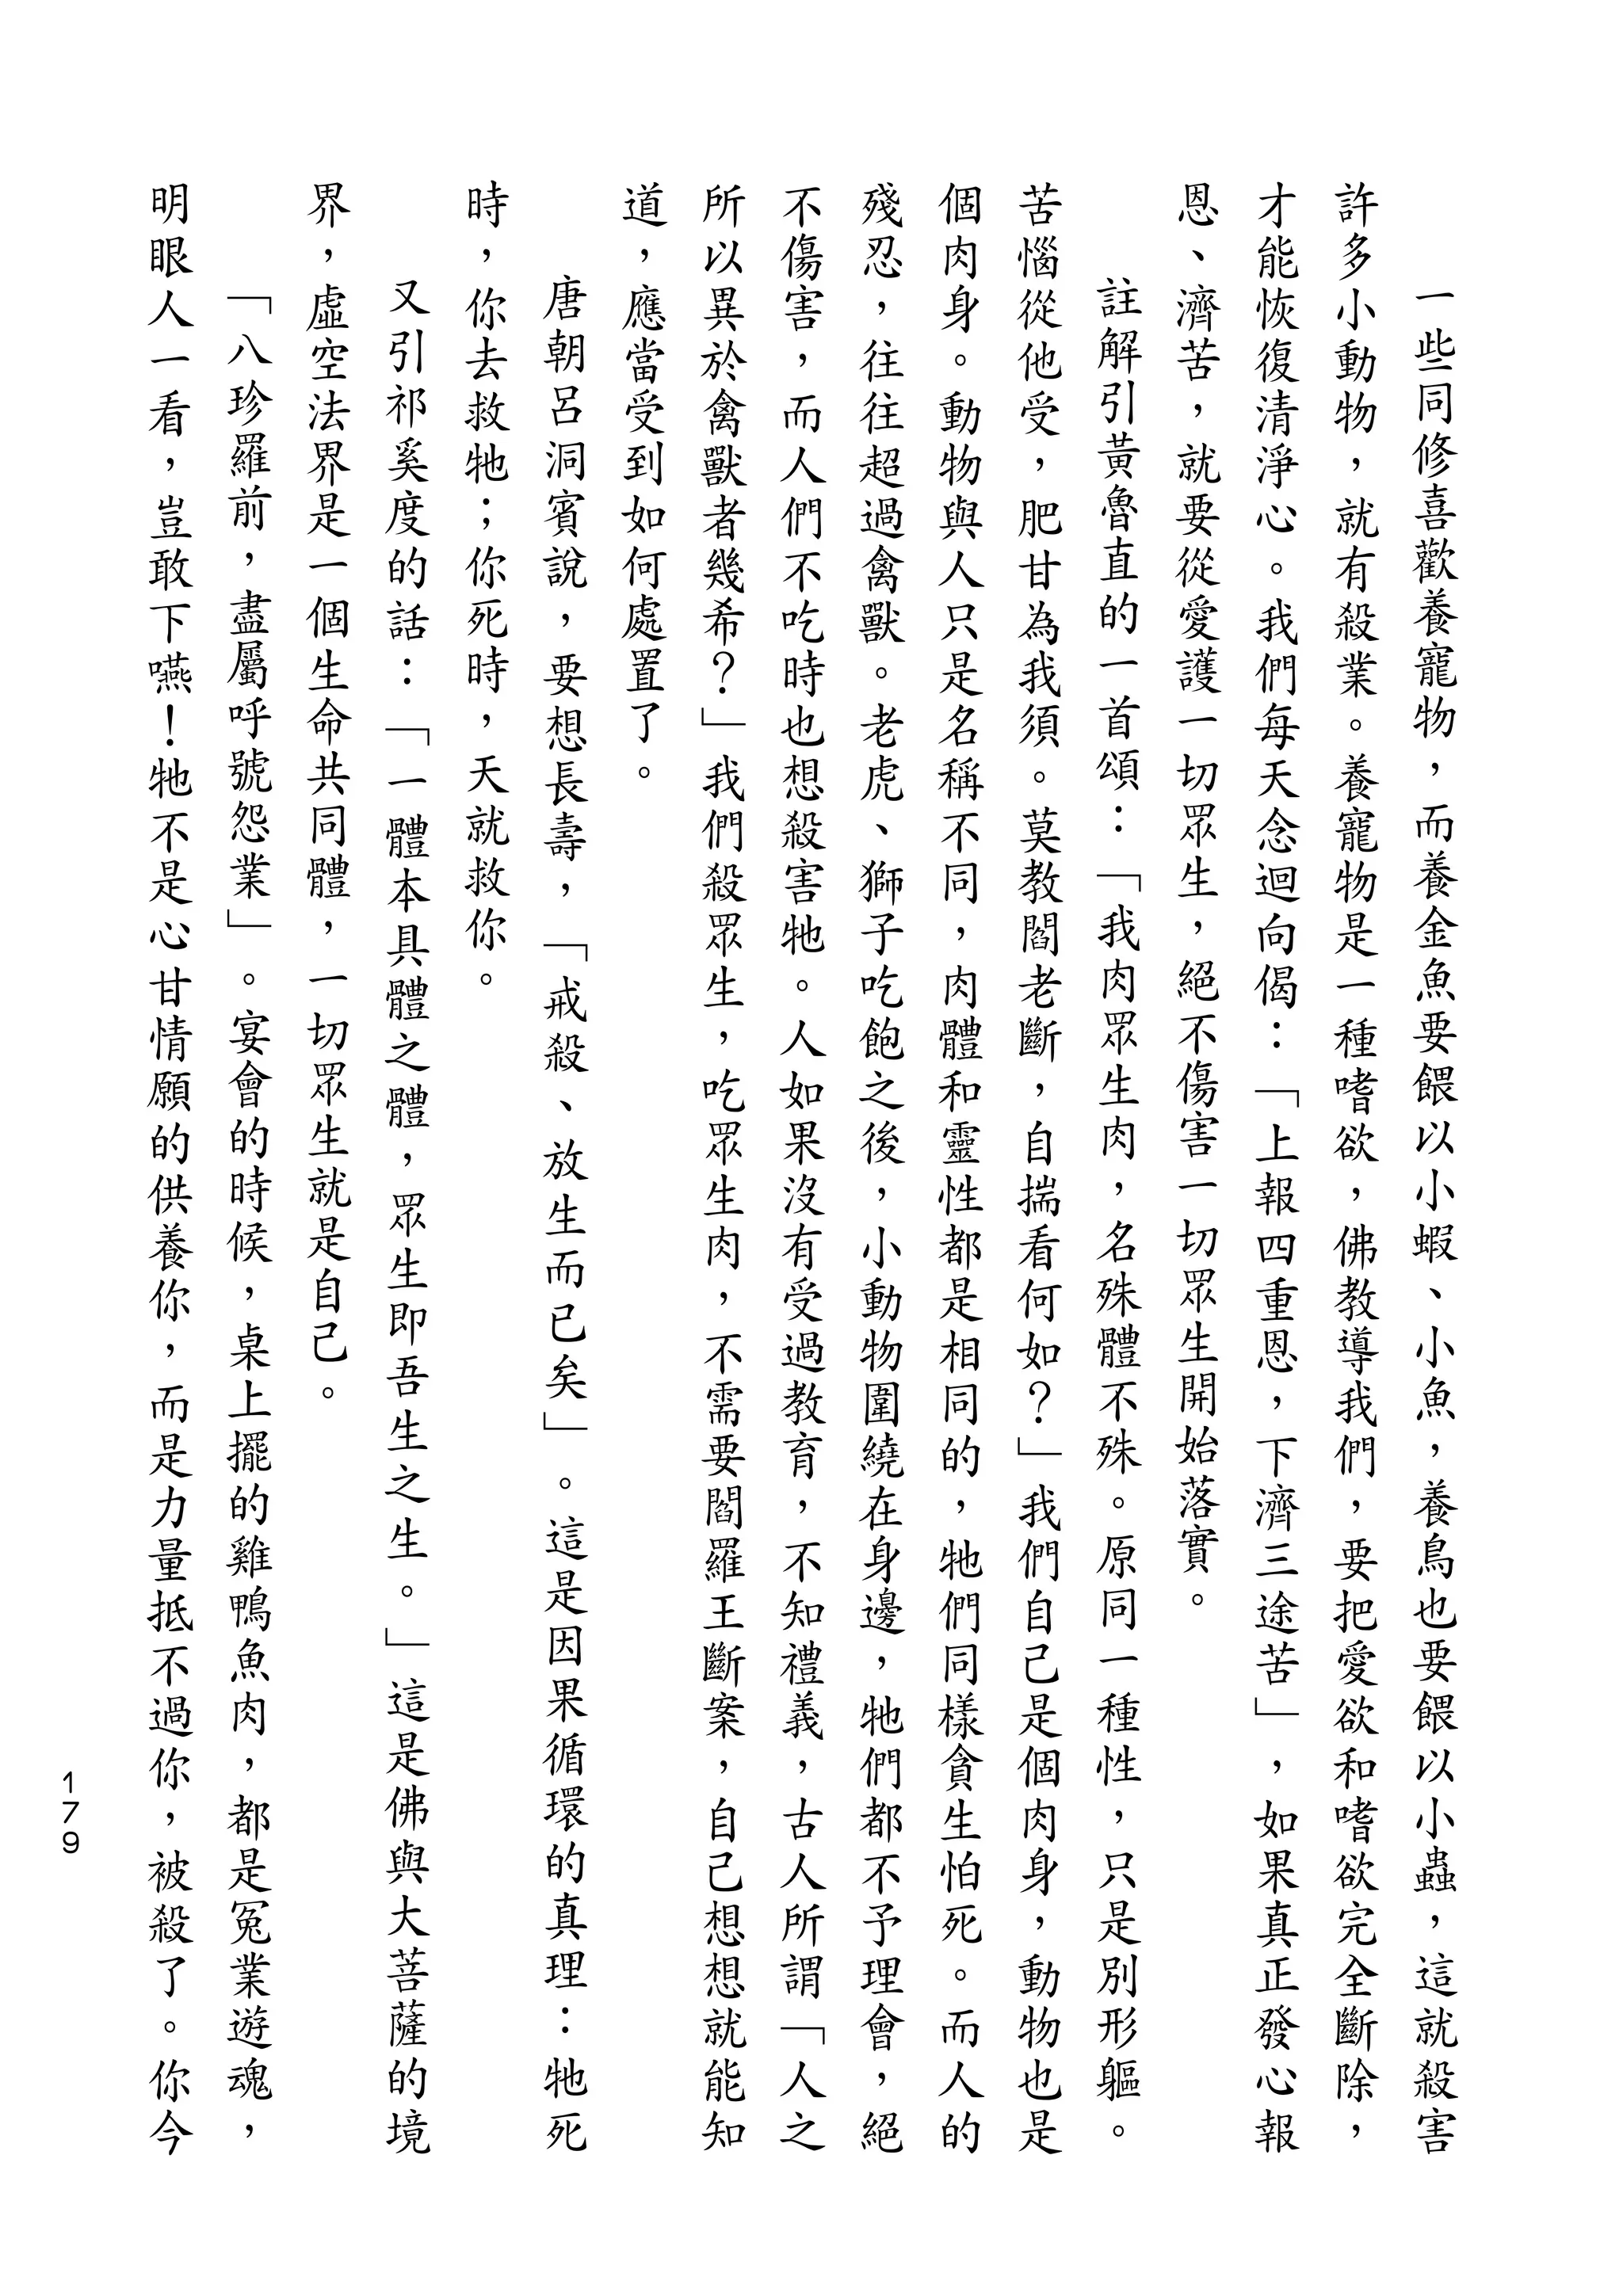 一些同修喜歡養寵物，而養金魚要餵以小蝦、小魚，養鳥也要餵以小蟲，這就殺害
許多小動物，就有殺業。養寵物是一種嗜欲，佛教導我們，要把愛欲和嗜欲完全斷除，
才能恢復清淨心。我們每天念迴向偈：「上報四重恩，下濟三途苦」，如果真正發心報
恩、濟苦，就要從愛護一切眾生，絕不傷害一切眾生開始落實。
註解引黃魯直的一首頌：「我肉眾生肉，名殊體不殊。原同一種性，只是別形軀。
苦惱從他受，肥甘為我須。莫教閻老斷，自揣看何如？」我們自己是個肉身，動物也是
個肉身。動物與人只是名稱不同，肉體和靈性都是相同的，牠們同樣貪生怕死。而人的
殘忍，往往超過禽獸。老虎、獅子吃飽之後，小動物圍繞在身邊，牠們都不予理會，絕
不傷害，而人們不吃時也想殺害牠。人如果沒有受過教育，不知禮義，古人所謂「人之
所以異於禽獸者幾希？」我們殺眾生，吃眾生肉，不需要閻羅王斷案，自己想想就能知
道，應當受到如何處置了。
唐朝呂洞賓說，要想長壽，「戒殺、放生而已矣」。這是因果循環的真理：牠死
時，你去救牠；你死時，天就救你。
又引祁奚度的話：「一體本具體之體，眾生即吾生之生。」這是佛與大菩薩的境
界，虛空法界是一個生命共同體，一切眾生就是自己。
「八珍羅前，盡屬呼號怨業」。宴會的時候，桌上擺的雞鴨魚肉，都是冤業遊魂，
明眼人一看，豈敢下嚥！牠不是心甘情願的供養你，而是力量抵不過你，被殺了。你今
179